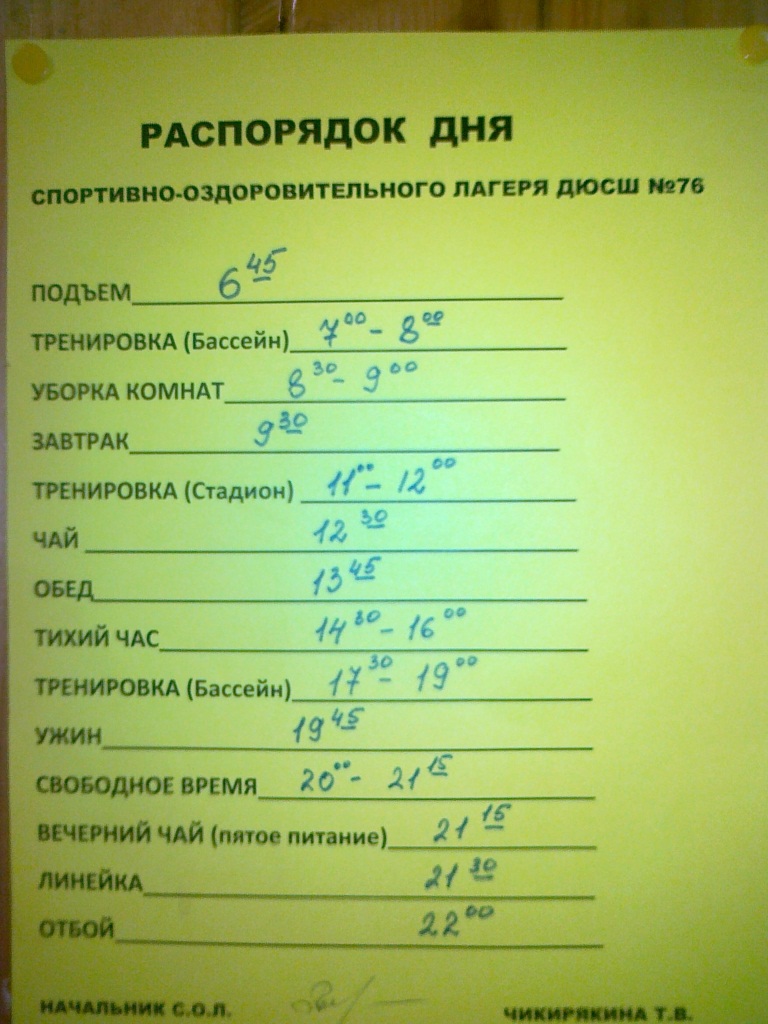 РАСПОРЯДОК ДНЯ
СПОРТИВНО-ОЗДОРОВИТЕЛЬНОГО ЛАГЕРЯ ДЮСШ №76
ПОДЪЕМ 6 45
ТРЕНИРОВКА (Бассейн) 7 00 - 8 00
УБОРКА КОМНАТ 8 30 - 9 00
ЗАВТРАК 9 30
ТРЕНИРОВКА (Стадион) 11 00 - 12 00
ЧАЙ 12 30
ОБЕД 13 45
ТИХИЙ ЧАС 14 30 - 16 00
ТРЕНИРОВКА (Бассейн) 17 30 - 19 00
УЖИН 19 45
СВОБОДНОЕ ВРЕМЯ 20 00 - 21 15
ВЕЧЕРНИЙ ЧАЙ (пятое питание) 21 15
ЛИНЕЙКА 21 30
ОТБОЙ 22 00
НАЧАЛЬНИК С.О.Л. ЧИКИРЯКИНА Т.В.